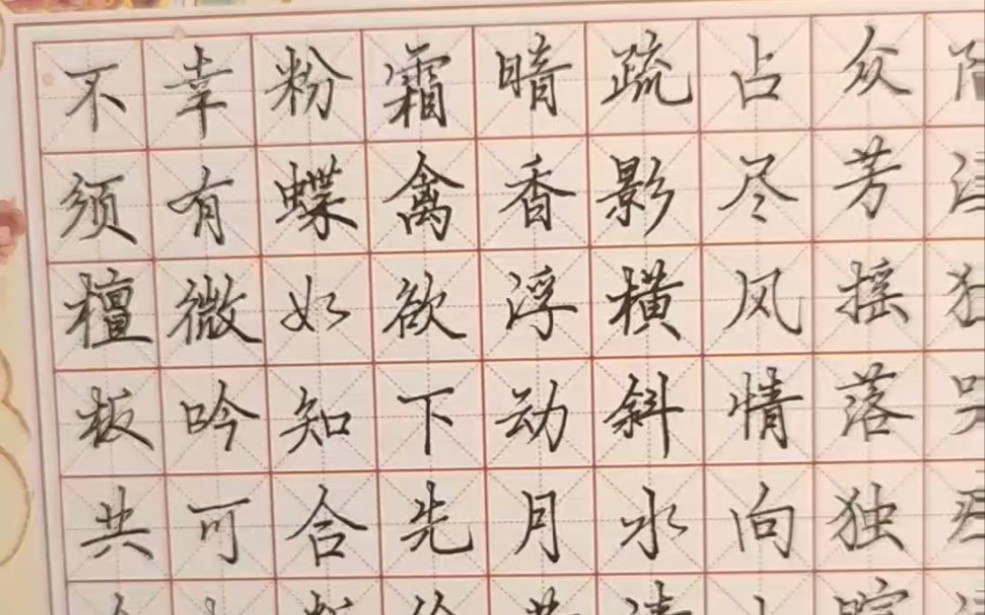 众芳摇落独
占尽风情向
疏影横斜水
暗香浮动月
霜禽欲下先
粉蝶如知合
幸有微吟可
不须檀板共